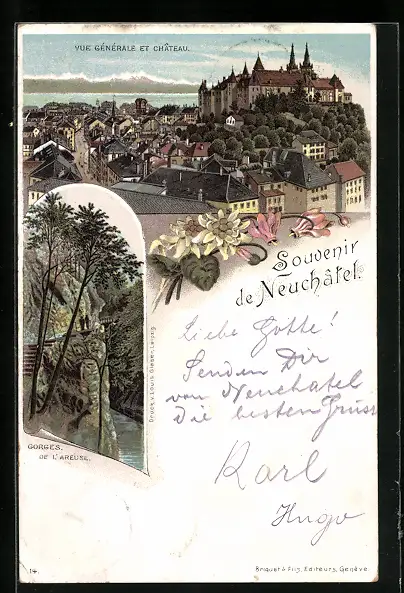 VUE GÉNÉRALE ET CHÂTEAU.
Souvenir
de Neuchâtel.
Liebe Gotte!
Senden Dir
von Neuchatel
die besten Grüss
Karl
Hugo
Druck v. Louis Glaser, Leipzig
GORGES.
DE L'AREUSE.
14.
Briquet & Fils, Editeurs, Genève